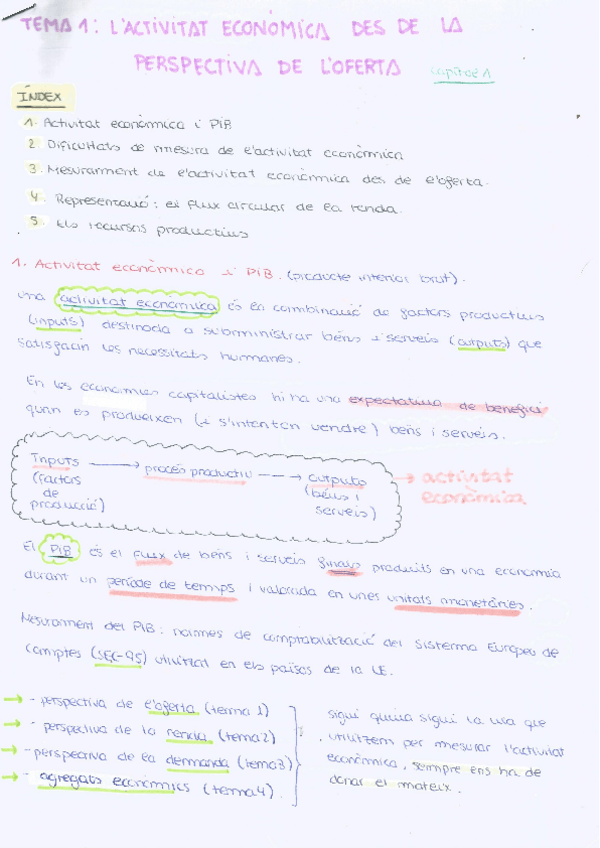 TEMA 1: L'ACTIVITAT ECONÒMICA DES DE LA
PERSPECTIVA DE L'OFERTA capítol 1
ÍNDEX
1. Activitat econòmica i PIB
2. Dificultats de mesura de l'activitat econòmica
3. Mesurament de l'activitat econòmica des de l'oferta.
4. Representació: el flux circular de la renda.
5. Els recursos productius
1. Activitat econòmica i PIB. (producte interior brut).
una activitat econòmica és la combinació de factors productius
(inputs) destinada a subministrar béns i serveis (outputs) que
satisfacin les necessitats humanes.
En les economies capitalistes hi ha una expectativa de benefici
quan es produeixen (i s'intenten vendre) béns i serveis.
Inputs → procés productiu → outputs → activitat
(factors (béns i econòmica
de serveis)
producció)
El PIB és el flux de béns i serveis finals produïts en una economia
durant un període de temps i valorada en unes unitats monetàries.
Mesurament del PIB: normes de comptabilització del Sistema Europeu de
Comptes (SEC-95) utilitzat en els països de la UE.
→ - perspectiva de l'oferta (tema 1)
→ - perspectiva de la renda (tema 2)
→ - perspectiva de la demanda (tema 3)
→ - agregats econòmics (tema 4).
sigui quina sigui la via que
utilitzem per mesurar l'activitat
econòmica, sempre ens ha de
donar el mateix.